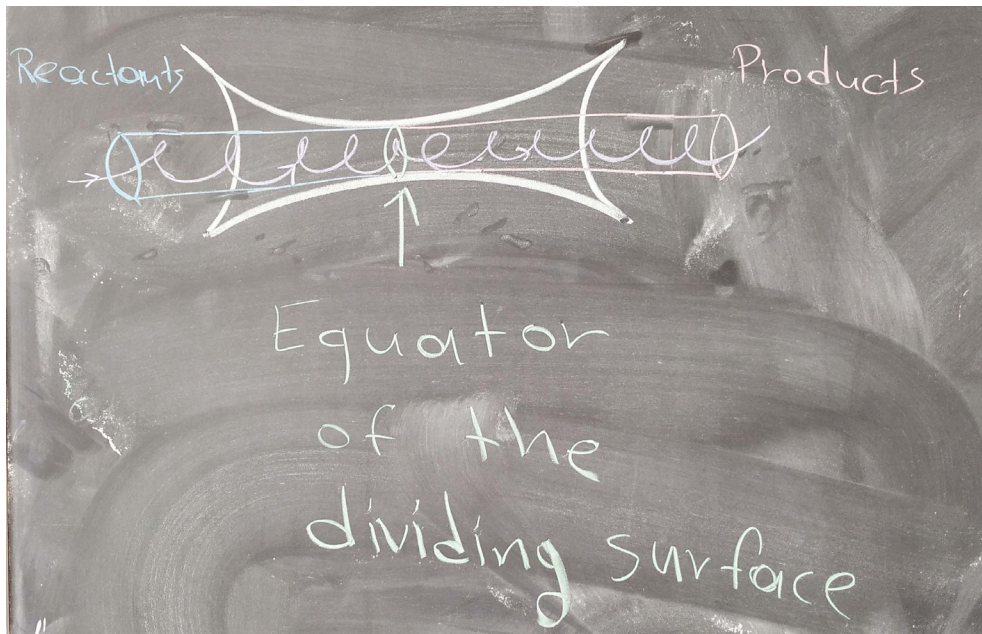 Reactants
Products
Equator
of the
dividing surface